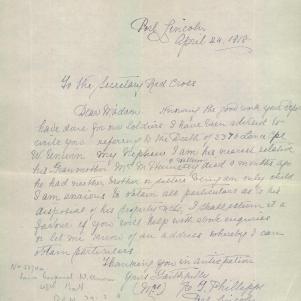 Port Lincoln
April 24, 1918
To the, Secretary Red Cross
Dear Madam. Knowing the good work your
have done for our soldiers I have been advised to
write you referring to the Death of 3370 Lance Cpl
W. my Nephew I am his nearest relative
his Mrs M died 9 months ago
he had neither Brother or sister being an only child
I am anxious to obtain all particulars as to his
disposal of his I shall esteem it a
favour if you will help with some enquiries
or let me know of an address whereby I can
obtain particulars
Thanking you in anticipation
Yours Faithfully
(Mrs) Phillipps
Port Lincoln
Lance Corporal W.